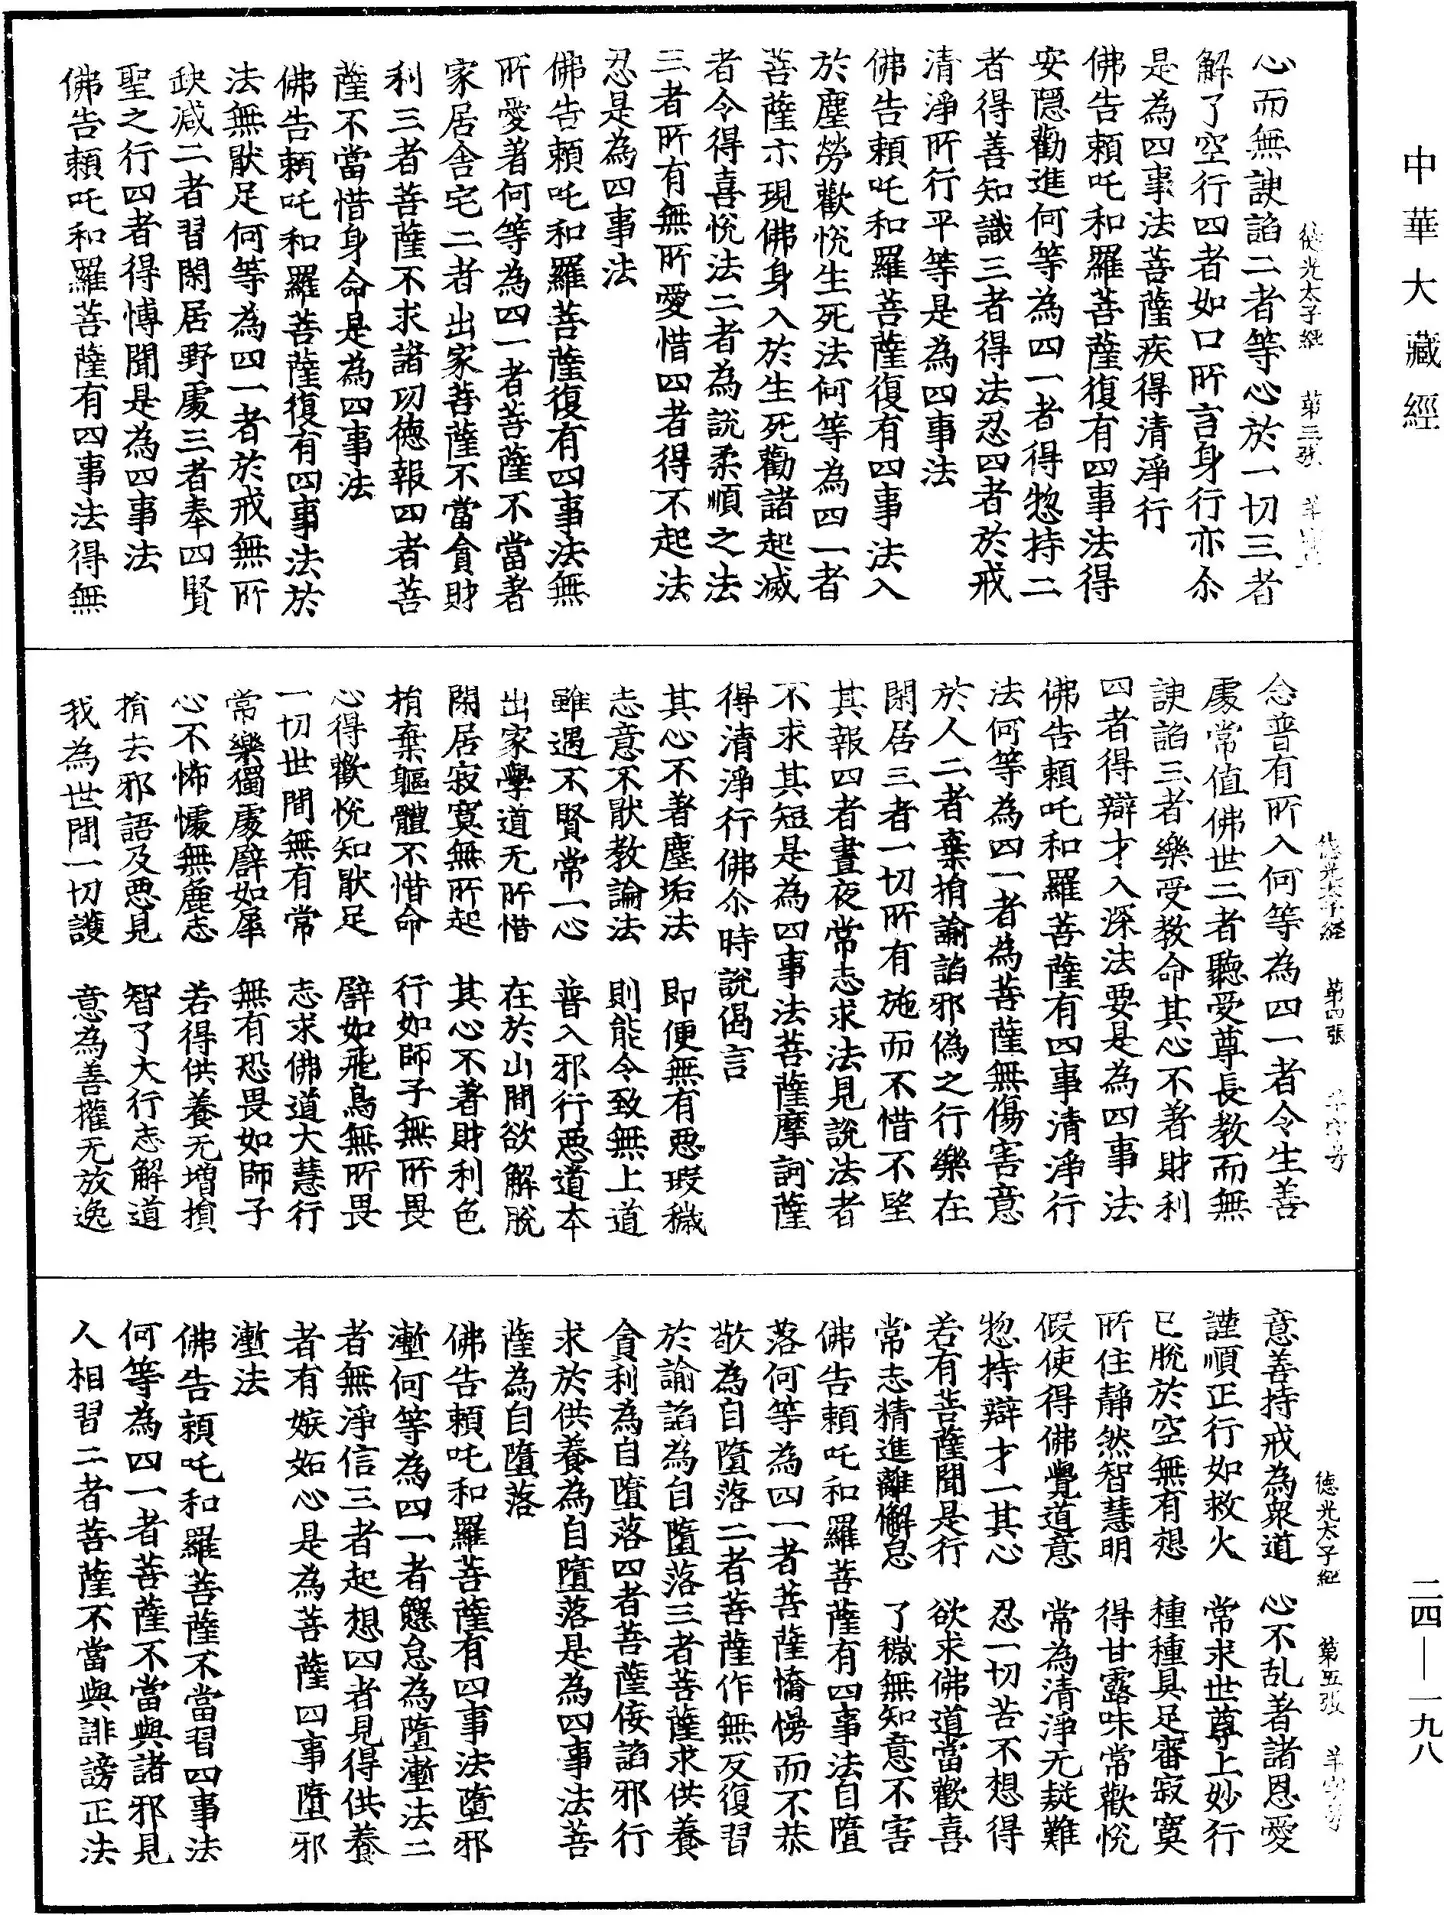 中華大藏經
德光太子經 第三張
心而無諛諂二者等心於一切三者
解了空行四者如口所言身行亦尒
是為四事法菩薩疾得清淨行
佛告賴吒和羅菩薩復有四事法得
安隱勸進何等為四一者得惣持二
者得善知識三者得法忍四者於戒
清淨所行平等是為四事法
佛告賴吒和羅菩薩復有四事法入
於塵勞歡悅生死法何等為四一者
菩薩示現佛身入於生死勸諸起滅
者令得喜悅法二者為說柔順之法
三者所有無所愛惜四者得不起法
忍是為四事法
佛告賴吒和羅菩薩復有四事法無
所愛著何等為四一者菩薩不當著
家居舍宅二者出家菩薩不當貪財
利三者菩薩不求諸功德報四者菩
薩不當惜身命是為四事法
佛告賴吒和羅菩薩復有四事法於
法無猒足何等為四一者於戒無所
缺減二者習閑居野處三者奉四賢
聖之行四者得博聞是為四事法
佛告賴吒和羅菩薩有四事法得無
德光太子經 第四張 羊字号
念普有所入何等為四一者令生善
處常值佛世二者聽受尊長教而無
諛諂三者樂受教命其心不著財利
四者得辯才入深法要是為四事法
佛告賴吒和羅菩薩有四事清淨行
法何等為四一者為菩薩無傷害意
於人二者棄捐諭諂邪偽之行樂在
閑居三者一切所有施而不惜不望
其報四者晝夜常志求法見說法者
不求其短是為四事法菩薩摩訶薩
得清淨行佛尒時說偈言
其心不著塵垢法 即便無有惡瑕穢
志意不猒教論法 則能令致無上道
雖遇不賢常一心 普入邪行惡道本
出家學道无所惜 在於山閒欲解脫
閑居寂寞無所起 其心不著財利色
捐棄軀體不惜命 行如師子無所畏
心得歡悅知猒足 譬如飛鳥無所畏
一切世間無有常 志求佛道大慧行
常樂獨處譬如犀 無有恐畏如師子
心不怖懅無麁志 若得供養无增損
捐去邪語及惡見 智了大行志解道
我為世間一切護 意為善權无放逸
德光太子經 第五張 羊字号
意善持戒為眾道 心不乱著諸恩愛
謹順正行如救火 常求世尊上妙行
已脫於空無有想 種種具足審寂寞
所住靜然智慧明 得甘露味常歡悅
假使得佛覺道意 常為清淨无疑難
惣持辯才一其心 忍一切苦不想得
若有菩薩聞是行 欲求佛道當歡喜
常志精進離懈怠 了穢無知意不害
佛告賴吒和羅菩薩有四事法自墮
落何等為四一者菩薩憍慢而不恭
敬為自墮落二者菩薩作無反復習
於諭諂為自墮落三者菩薩求供養
貪利為自墮落四者菩薩佞諂邪行
求於供養為自墮落是為四事法菩
薩為自墮落
佛告賴吒和羅菩薩有四事法墮邪
壍何等為四一者懈怠為墮壍法二
者無淨信三者起想四者見得供養
者有嫉妬心是為菩薩四事墮邪
壍法
佛告賴吒和羅菩薩不當習四事法
何等為四一者菩薩不當與諸邪見
人相習二者菩薩不當與誹謗正法
二四—一九八